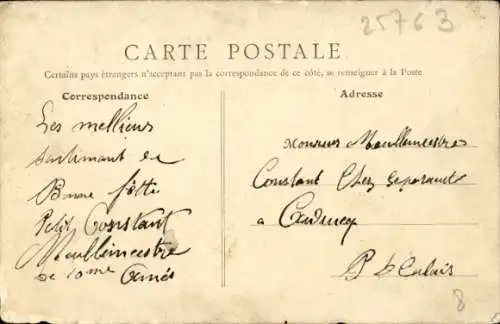 25763
CARTE POSTALE
Certains pays étrangers n'acceptant pas la correspondance de ce côté, se renseigner à la Poste
Correspondance
Adresse
Les mellieur
santimant de
Bonne fette
Petit Constant
Moullemcestre
De 10me
Monsieur Moullemcestre
Constant Chez
a
P d Calais
8